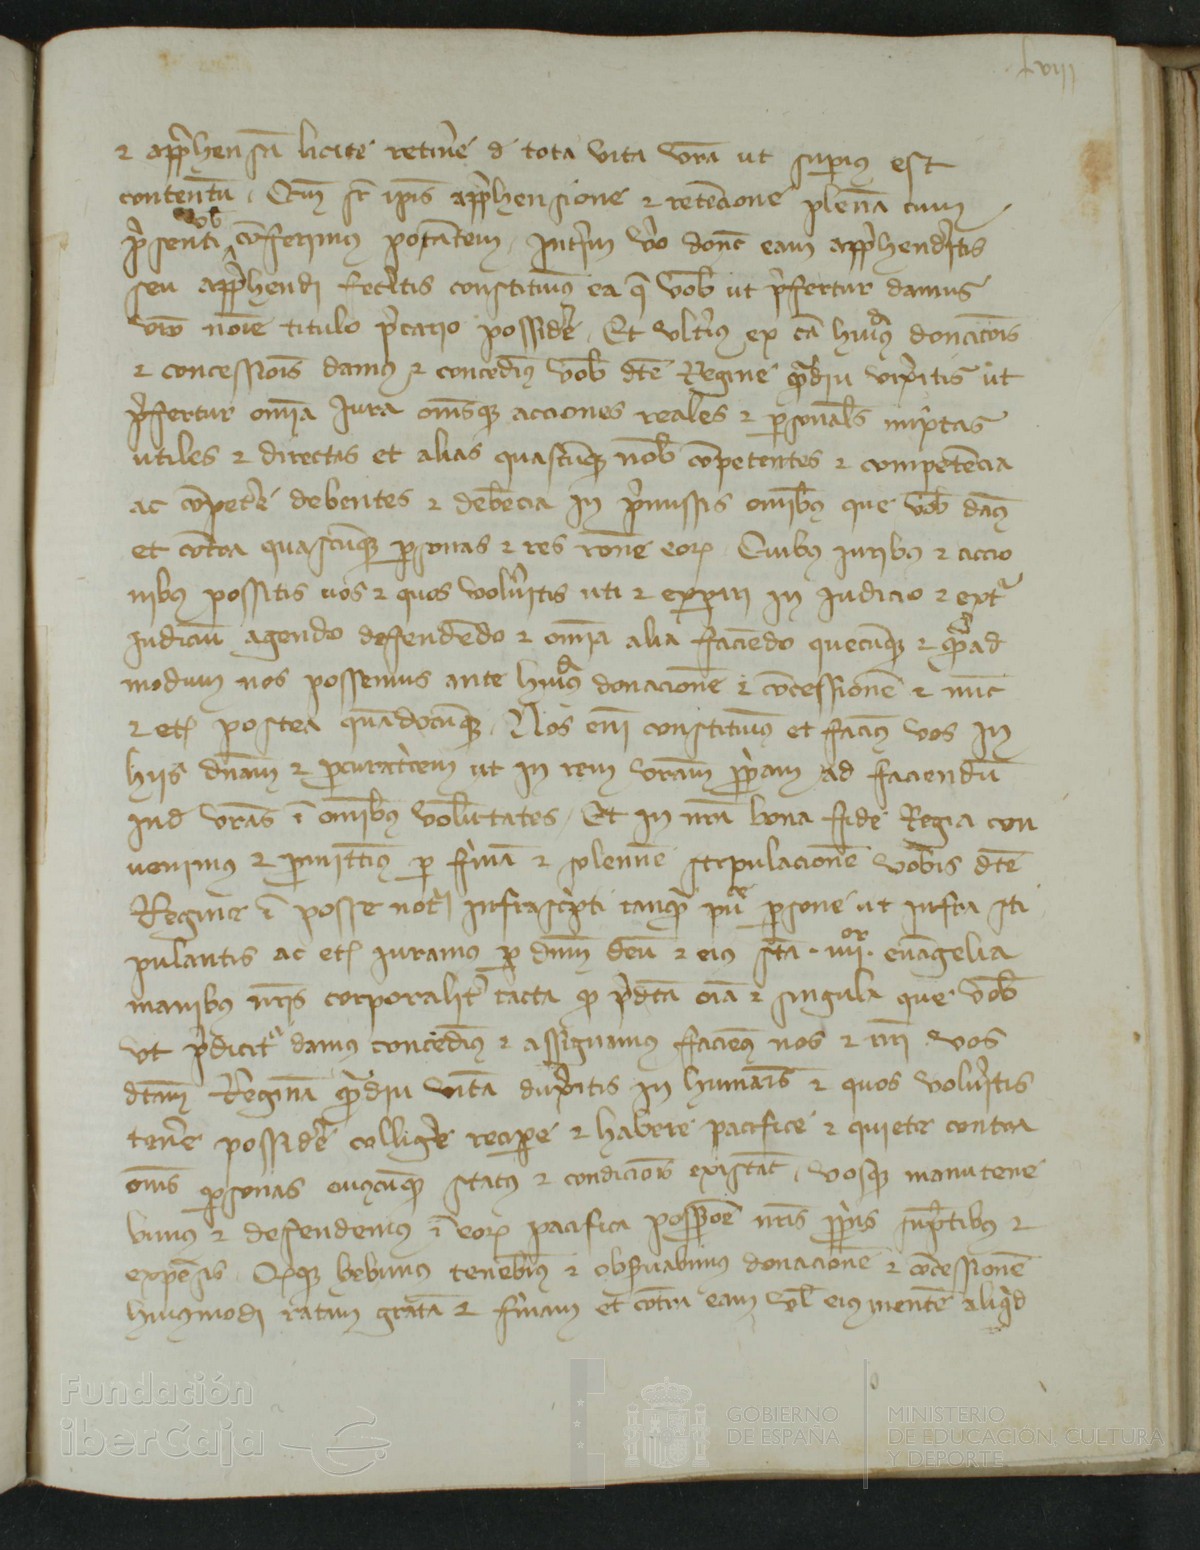 lviii
⁊ apprhensã licite retinẽ d tota vita vrã ut supius est
contentũ. Cũ sr ipis apprhensione ⁊ retẽcione plenã cum
vob
prsenti cõferimus potãtem. Intrim vo donc eam apprhendritis
seu apprhendi fecritis constituimus ea q vob ut prfertur damus
vro noie titulo prcario possidẽ. Et vltius ex cã huiꝰ donacõis
⁊ concessiois damus ⁊ concedimꝰ vob dte Regine qdiu vixitis ut
prfertur omia Iura omsqꝫ acciones reales ⁊ psonals mixtas
utiles ⁊ directas et alias quascũqꝫ nob cõpetentes ⁊ competẽcia
ac cõpetẽ debentes ⁊ debẽcia in prmissis omibꝰ que vob damꝰ
et cõtra quascũqꝫ psonas ⁊ res rone eoꝝ. Quibꝰ iuribꝰ ⁊ accio
nibꝰ possitis vos ⁊ quos volritis uti ⁊ expiri in iudicio ⁊ extr
iudiciũ agendo defendẽdo ⁊ omia alia faciẽdo quecũqꝫ ⁊ qẽad
modum nos possemus ante huiꝰ donacionẽ ⁊ cõcessionẽ ⁊ nũc
⁊ etꝫ postea quãdocũqꝫ. Nos eni constituimꝰ et facimꝰ vos in
hiis dnam ⁊ pcuratricem ut in rem vram ppriam ad faciendũ
ind vras ĩ omibꝰ volũtates. Et in nrã bona fide Regia con
venimus ⁊ pmittimꝰ p frmã ⁊ solennẽ stipulacionẽ vobis dte
Regine ĩ posse notrij infrascpti tanqꝫ puce psone ut infra sti
pulantis ac etꝫ iuramus p dnm deũ ⁊ eius scta .iiiior. euãgelia
manibꝰ nris corporalitr tacta qꝫ prdcta oia ⁊ singula que vob
vt prdicitr damus concedimꝰ ⁊ assignamus faciemꝰ nos ⁊ nri vos
dctam Reginã qdiu vitã duxitis in humanis ⁊ quos volritis
tenẽ possidẽ colligẽ recipe ⁊ habere pacifice ⁊ quiete contra
oms psonas cuiuscũqꝫ statꝰ ⁊ condicionis existãt. vosqꝫ manutene
bimus ⁊ defendemus ĩ eoꝝ pacifica possessioe nris ppriis sũptibꝰ ⁊
expẽsis. hebimus tenebimꝰ ⁊ obsuabimus donacionẽ ⁊ cõcessionẽ
huiusmodi ratam gratã ⁊ frmam et cõtra eam vl eius mentẽ aliqd
Fundación
iberCaja
GOBIERNO
DE ESPAÑA
MINISTERIO
DE EDUCACIÓN, CULTURA
Y DEPORTE